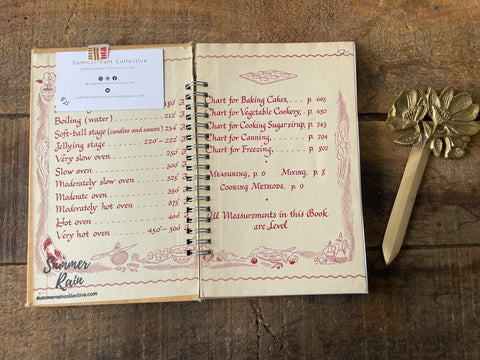 Summer Rain Collective
summerraincollective.com
@summerraincollective
summerraincollective@gmail.com
Boiling (water) 212° F
Soft-ball stage (candies and sauces) 234° F
Jellying stage 220°-222° F
Very slow oven 250° F
Slow oven 300° F
Moderately slow oven 325° F
Moderate oven 350° F
Moderately hot oven 375° F
Hot oven 400° F
Very hot oven 450°-500° F
Summer
Rain
summerraincollective.com
Chart for Baking Cakes, p. 665
Chart for Vegetable Cookery, p. 450
Chart for Cooking Sugar sirup, p. 743
Chart for Canning, p. 794
Chart for Freezing, p. 802
Measuring, p. 6 Mixing, p. 8
Cooking Methods, p. 9
All Measurements in this Book
are Level